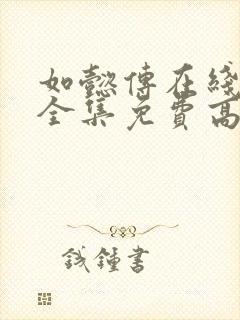 如懿傳在綫
全集免費高
錢鍾書